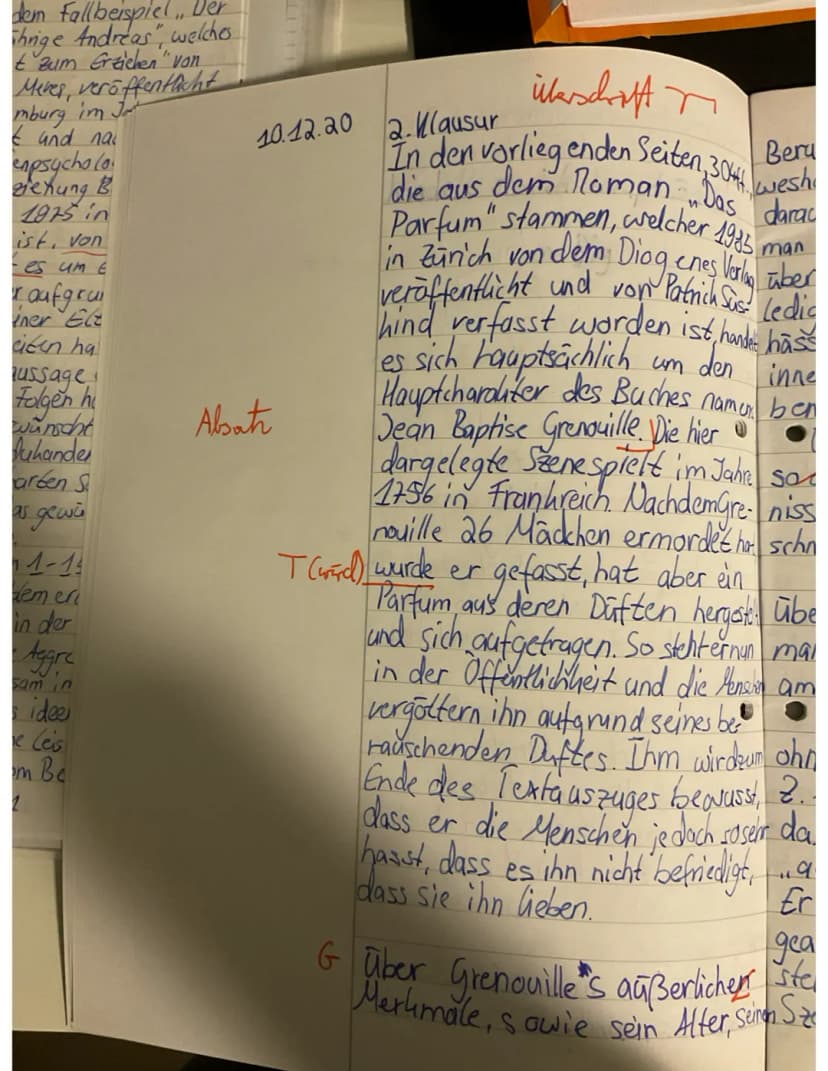 dem Fallbeispiel „Der
ihrige Andreas", welches
t zum Erziehen" von
veröffentlicht
mburg im
t und
1975 in
ist, von
es um
r aufgru
iner
ussage
Folgen
wünscht
Zuhander
arten S
as gewü
n 1-1
in der
Aggre
sam in
s idee
Überschrift
10.12.20
2. Klausur
In den vorliegenden Seiten, 304ff.,
die aus dem Roman „Das
Parfum" stammen, welcher 1985
in Zürich von dem Diogenes Verlag
veröffentlicht und von Patrick Süs-
kind verfasst worden ist, handelt
es sich hauptsächlich um den
Hauptcharakter des Buches namens
Absatz
Jean Baptise Grenouille. Die hier
dargelegte Szene spielt im Jahre
1756 in Frankreich. Nachdem Gre-
nouille 26 Mädchen ermordet hat
T (wird)
wurde er gefasst, hat aber ein
Parfum aus deren Düften hergestellt
und sich aufgetragen. So steht er nun
in der Öffentlichkeit und die Menschen
vergöttern ihn aufgrund seines be-
rauschenden Duftes. Ihm wird zum
Ende des Textauszuges bewusst,
dass er die Menschen jedoch so sehr
hasst, dass es ihn nicht befriedigt,
dass sie ihn lieben.
G
Über Grenouille's äußerlichen
Merkmale, sowie sein Alter, seinen
Beru
wesh
darac
man
über
ledig
häss
inne
ben
niss
schn
Übe
man
am
ohn
z.
da
„a
Er
gea
ste
Sze